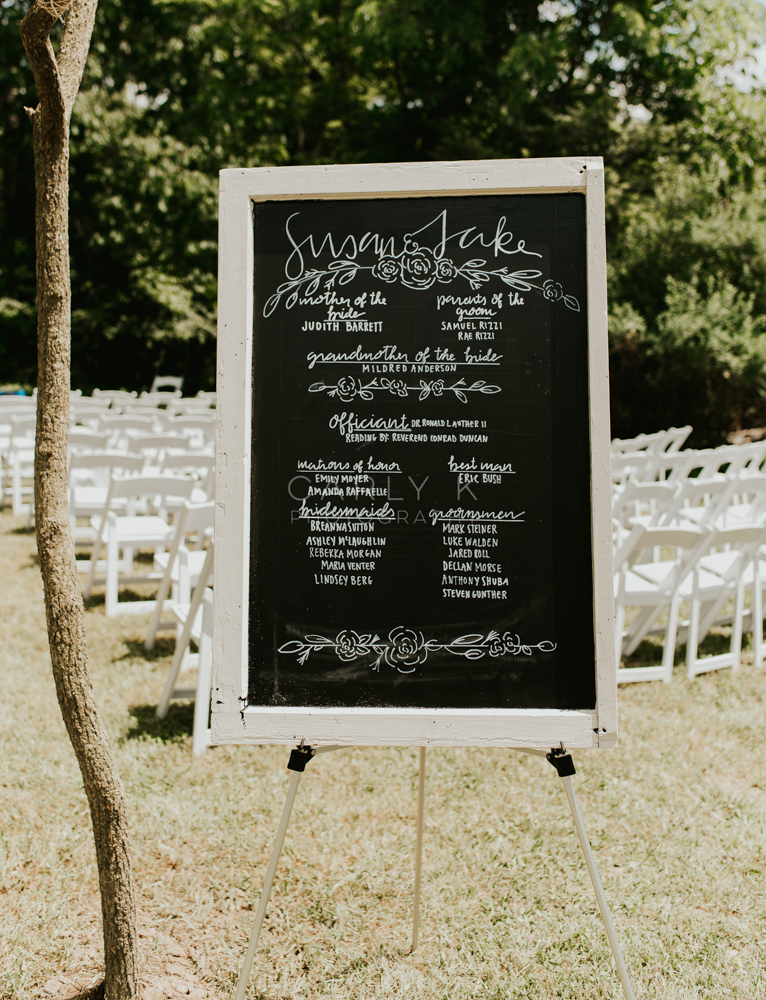 Susan & Jake
mother of the
bride
JUDITH BARRETT
parents of the
groom
SAMUEL RIZZI
RAE RIZZI
grandmother of the bride
MILDRED ANDERSON
officiant DR RONALD LAUTHER II
READING BY: REVEREND CONRAD DUNCAN
matrons of honor
EMILY MOYER
AMANDA RAFFAELLE
best man
ERIC BUSH
CARLY K
PHOTOGRAPHY
bridesmaids
BREANNA SUTTON
ASHLEY McLAUGHLIN
REBEKKA MORGAN
MARIA VENTER
LINDSEY BERG
groomsmen
MARK STEINER
LUKE WALDEN
JARED ROLL
DELLAN MORSE
ANTHONY SHUBA
STEVEN GUNTHER